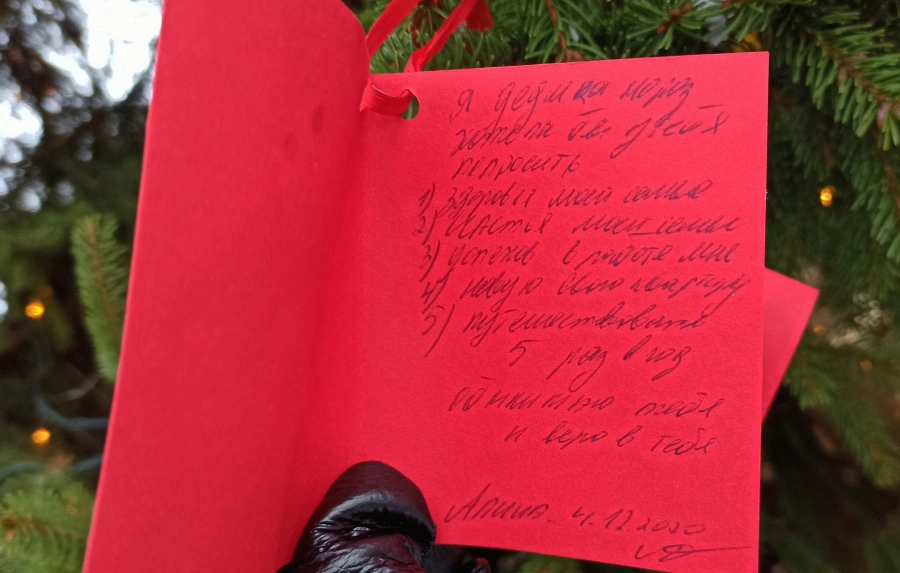 Я дедушка мороз
хотела бы у тебя
попросить
1) Здоровья моей семье
2) Щастья моей семье
3) успехов в работе мне
4) новую свою квартиру
5) путешествовать
5 раз в год
обнимаю тебя
и верю в тебя
4.12.2020